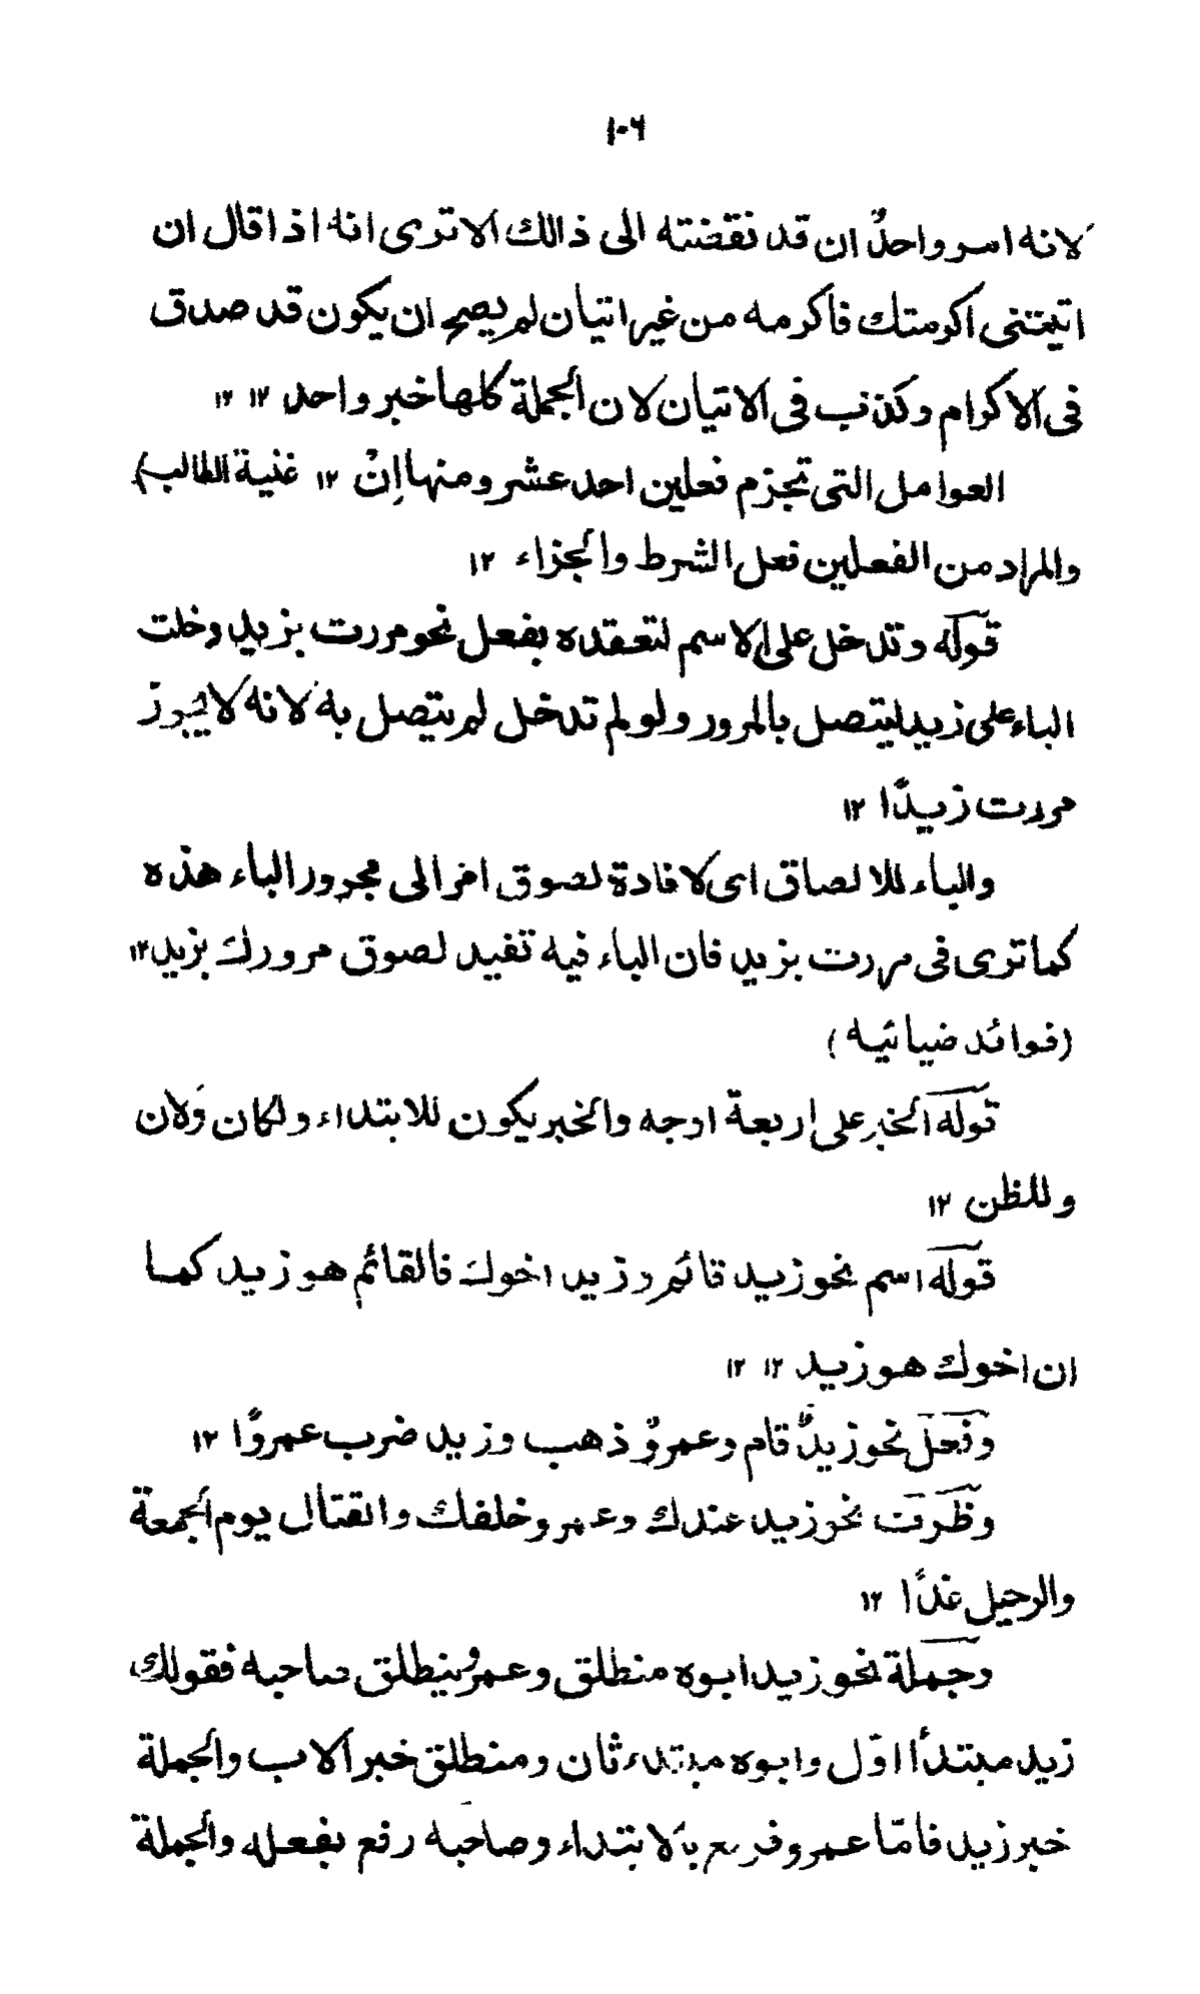 ١٠٦
لانه امر واحدٌ ان قد نقضته الى ذالك الا ترى انه اذا قال ان
اتيتنى اكرمتك فاكرمه من غير اتيان لم يصح ان يكون قد صدق
فى الاكرام وكذب فى الاتيان لان الجملة كلها خبر واحد ١٢ ١٢
العوامل التى تجزم فعلين احد عشر ومنها اِنْ ١٢ غنية الطالب)
والمراد من الفعلين فعل الشرط والجزاء ١٢
قوله وتدخل على الاسم لتعقده بفعل نحو مررت بزيد دخلت
الباء على زيد ليتصل بالمرور ولو لم تدخل لم يتصل به لانه لا يجوز
مررت زيدًا ١٢
والباء للالصاق اى لافادة لصوق امر الى مجرور الباء هذه
كما ترى فى مررت بزيد فان الباء فيه تفيد لصوق مرورك بزيد ١٢
(فوائد ضيائيه)
قوله الخبر على اربعة اوجه والخبر يكون للابتداء ولكان ولان
وللظن ١٢
قوله اسم نحو زيد قائم وزيد اخوك فالقائم هو زيد كما
ان اخوك هو زيد ١٢ ١٢
وفعل نحو زيدٌ قام وعمروٌ ذهب وزيد ضرب عمروًا ١٢
وظرف نحو زيد عندك وعمرو خلفك والقتال يوم الجمعة
والرحيل غدًا ١٢
وجملة نحو زيد ابوه منطلق وعمرٌو ينطلق صاحبه فقولك
زيد مبتدأ اوّل وابوه مبتدء ثان ومنطلق خبر الاب والجملة
خبر زيد فامّا عمرو فرفع بالابتداء وصاحبه رفع بفعله والجملة